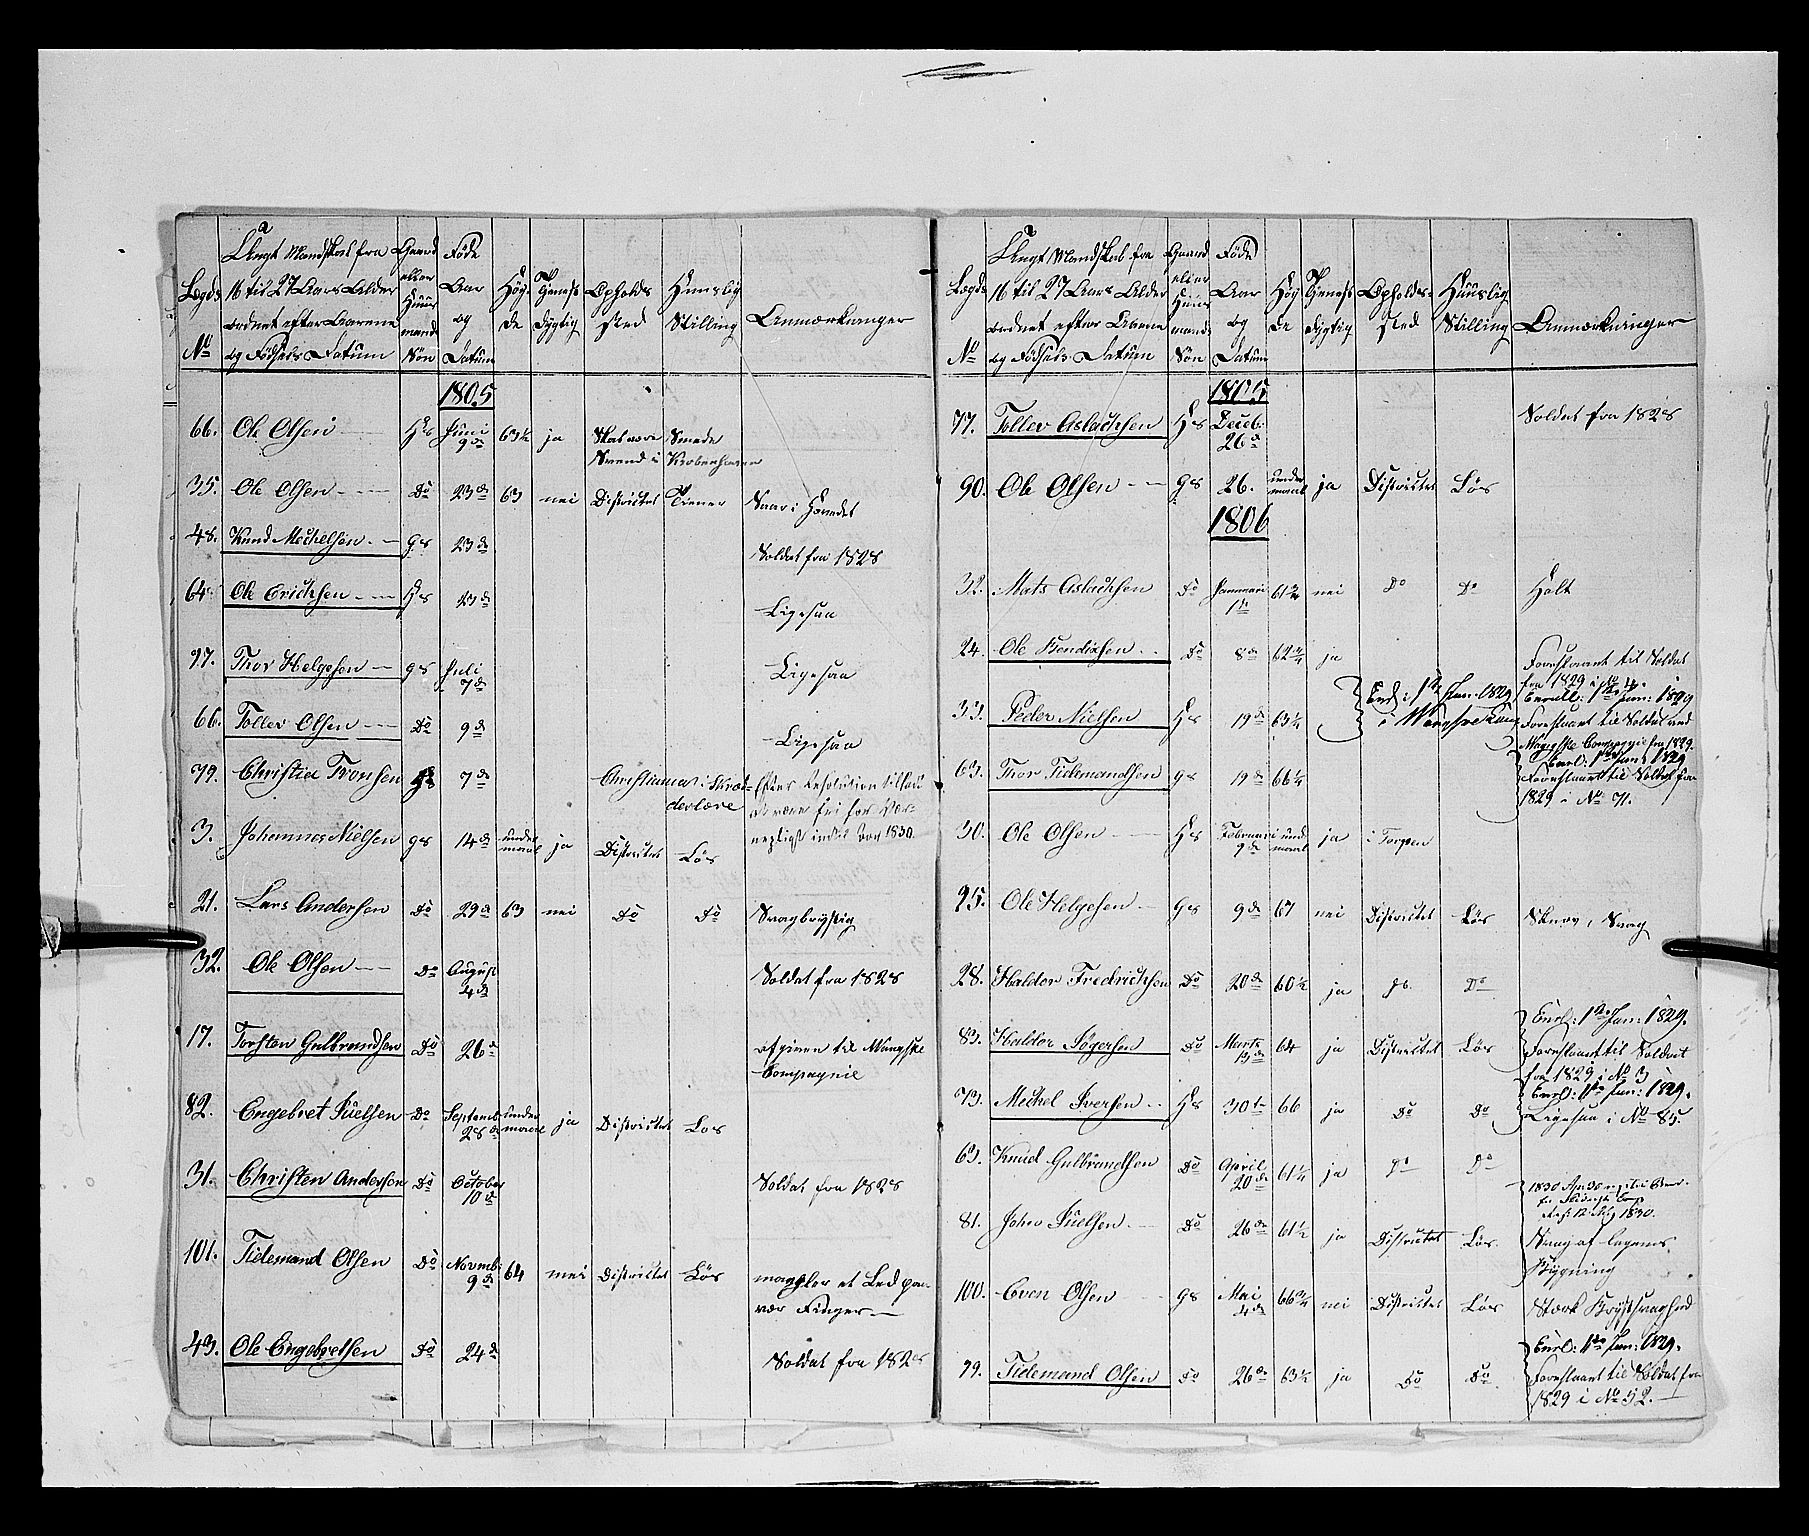 Lægds No | Ungt Mandskab fra 16 til 27 Aars Alder ordnet efter Aarene og Fødsels Datum | Gaard eller Huusmands Søn | Føde Aar og Datum | Høyde | Tjenestdygtig | Opholdssted | Huuslig Stilling | Anmærkninger
1805
66. Ole Olsen | Hs | Juni 9de | 63½ | ja | Smede Svend i Kiøbenhavn
35. Ole Olsen | Do | 23de | 63 | nei | Districtet | Tiener | Saar i Hovedet
48. Knud Mechelsen | gs | 23de | Soldat fra 1828
64. Ole Erichsen | Hs | 23de | Ligesaa
97. Thor Helgesen | gs | Juli 7de | Ligesaa
66. Tollev Olsen | Do | 9de | Ligesaa
79. Christia Tronsen | gs | 7de | Christiania i Skrædderlære | Efter Resolution tilstaaet være fri for indtil 1830.
3. Johannes Nielsen | gs | 14de | under maal | ja | Districtet | Løs
21. Lars Andersen | Do | 29de | 63 | nei | Do | Do | Svagbrystig
32. Ole Olsen | Do | August 4de | Soldat fra 1828
17. Torsten Gulbrandsen | Do | 26de | afgiven til Compagnie
82. Engebret Juelsen | Do | Septemb: 28de | under maal | ja | Districtet | Løs
31. Christen Andersen | Do | October 10de | Soldat fra 1828
101. Tidemand Olsen | Do | Novmb: 9de | 64 | nei | Districtet | Løs | mangler et Led paa hver Finger
43. Ole Engebretsen | Do | 24de | Soldat fra 1828
Lægds No | Ungt Mandskab fra 16 til 27 Aars Alder ordnet efter Aarene og Fødsels Datum | Gaard eller Huusmands Søn | Føde Aar og Datum | Høyde | Tjenestdygtig | Opholdssted | Huuslig Stilling | Anmærkninger
1805
77. Tollev Aslachsen | Hs | Deceb: 26de | Soldat fra 1828
90. Ole Olsen | gs | 26. | under maal | ja | Districtet | Løs
1806
32. Mats Aslachsen | Do | Januari 1ste | 61¾ | nei | Do | Do | Halt
24. Ole Bendixsen | Do | 8de | 62¼ | ja | Foreslaaet til Soldat fra 1829 i No 4.
33. Peder Nielsen | Hs | 19de | 63¼ | Enrl: 1ste Jan: 1829 Foreslaaet til Soldat ved Compagnie fra 1829.
63. Thor Tidemandsen | gs | 19de | 66¼ | Enrl: 1ste Jan: 1829 Foreslaaet til Soldat fra 1829 i No 71.
30. Ole Olsen | Hs | Februari 9de | und: maal | ja | i Torpen
95. Ole Helgesen | gs | 9de | 67 | nei | Districtet | Løs | Svag
28. Haldor Fredrichsen | Do | 20de | 60½ | ja | Do
83. Haldor Jøgersen | Do | Marts 19de | 64 | ja | Districtet | Løs | Enrl: 1ste Jan: 1829. Foreslaaet til Soldat fra 1829 i No 3
73. Mechel Iversen | Hs | 30te | 66 | ja | Do | Do | Enrl: 1ste Jan: 1829. Ligesaa i No 85.
63. Knud Gulbrandsen | Do | April 20de | 61¼ | ja | Do | Do
81. Johes Juelsen | Do | 26de | 61½ | ja | Districtet | Løs | 1830. Svag af Legems Bygning
100. Even Olsen | gs | Mai 4de | 66¾ | nei | Districtet | Løs | Stærk Brystsvaghed
99. Tidemand Olsen | Do | 26de | 63½ | ja | Do | Do | Enrl: 1ste Jan: 1829. Foreslaaet til Soldat fra 1829 i No 52.